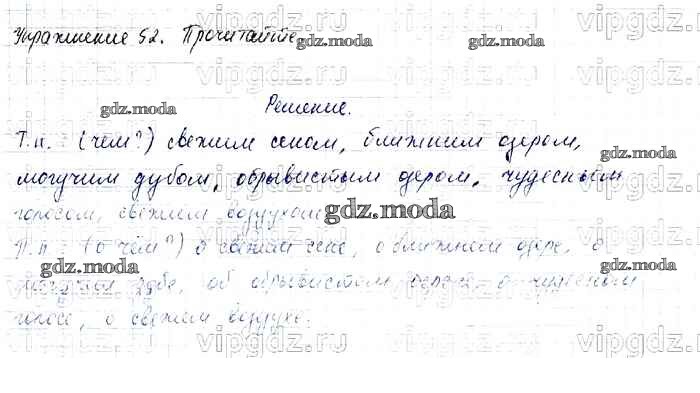 Упражнение 52. Прочитайте
Решение.
Т.п. (чем?) свежим сеном, ближним озером,
могучим дубом, обрывистым озером, чудесным
голосом, свежим воздухом
П.п. (о чём?) о свежем сене, о ближнем озере, о
дубе, об обрывистом о чудесном
голосе, о свежем воздухе.
gdz.moda
gdz.moda
gdz.moda
gdz.moda
gdz.moda
gdz.moda
gdz.moda
vipgdz.ru
vipgdz.ru
vipgdz.ru
vipgdz.ru